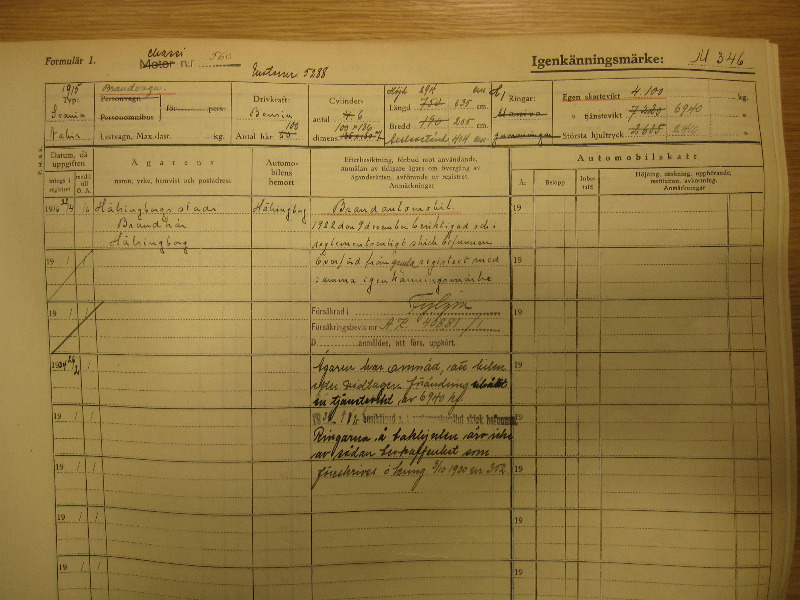 Formulär 1.
Chassi
Motor n:r 560
Igenkänningsmärke: M 346
1915
Typ:
Scania
Vabis
Brandvagn
Personvagn
Personomnibus
för pers.
Lastvagn, Max.-last. kg.
Drivkraft:
Bensin
Antal hkr.
Cylinder-
antal 4 6
100 x 136
dimens.
Höjd 294 cm
Längd 750 635 cm.
Bredd 190 205 cm.
Ringar:
Massiva
Egen skattevikt 4.100 kg.
» tjänstevikt 7220 6940 »
Största hjultryck »
Datum, då uppgiften
intogs i registret
medd. till Ö. Ä.
Ägarens
namn, yrke, hemvist och postadress
Automobilens hemort
Efterbesiktning, förbud mot användande, anmälan av tidigare ägare om övergång av äganderätten, avförande ur registret. Anmärkningar
Automobilskatt
År
Belopp
Inbetald
Höjning, sänkning, upphörande, restitution, avkortning. Anmärkningar
Hälsingborgs stads
Brandkår
Hälsingborg
Hälsingborg
Brandautomobil.
1922 den 9 december besiktigad och i
reglementsenligt skick befunnen
Överförd från gamla registret med
samma igenkänningsmärke
Försäkrad i
Försäkringsbevis nr
D anmälder, att förs. upphört.
Ägaren har anmäld, att bilen
efter vidtagen förändring
en tjänstevikt av 6940 kg.
Ringarna å bakhjulen äro icke
av sådan beskaffenhet som
föreskrives
19
19
19
19
19
19
19
19